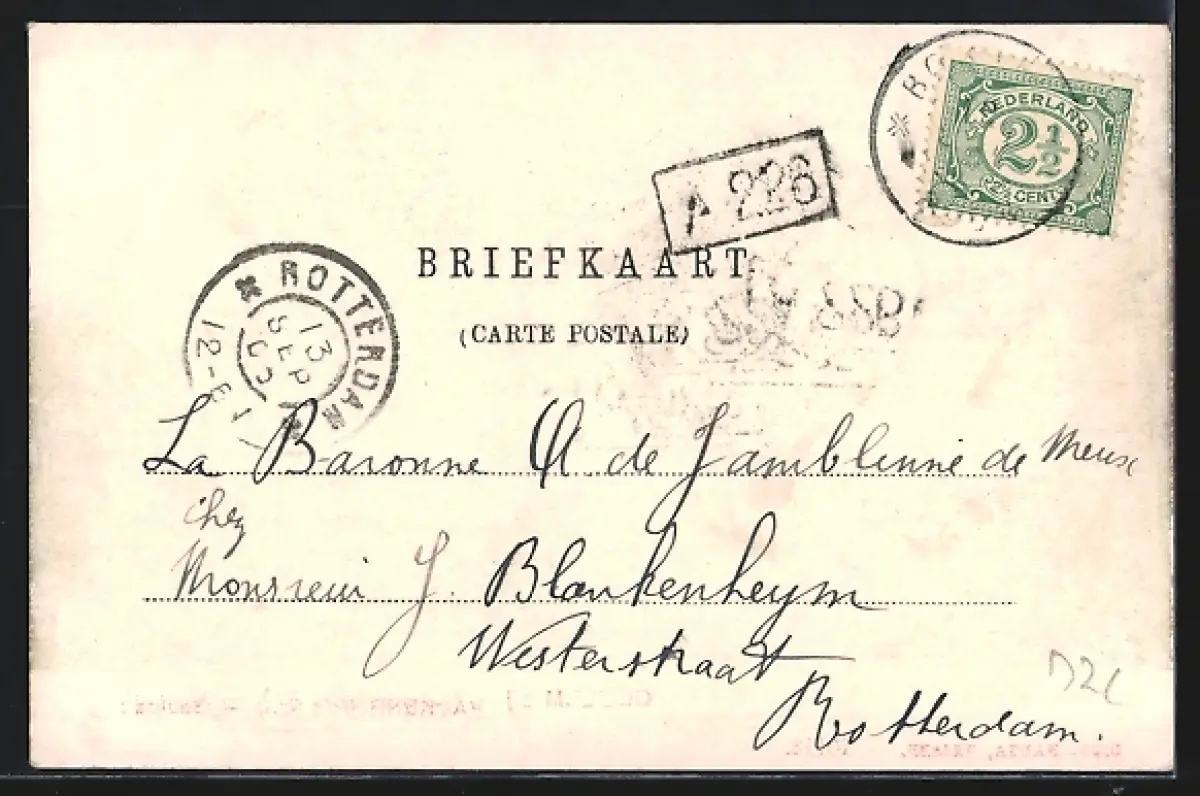 NEDERLAND
2½
CENT
A 226
BRIEFKAART
(CARTE POSTALE)
ROTTERDAM
13
SEP
12-
La Baronne de Jamblinne de Meuse
chez
Monsieur J. Blankenheym
Westerstraat
Rotterdam.